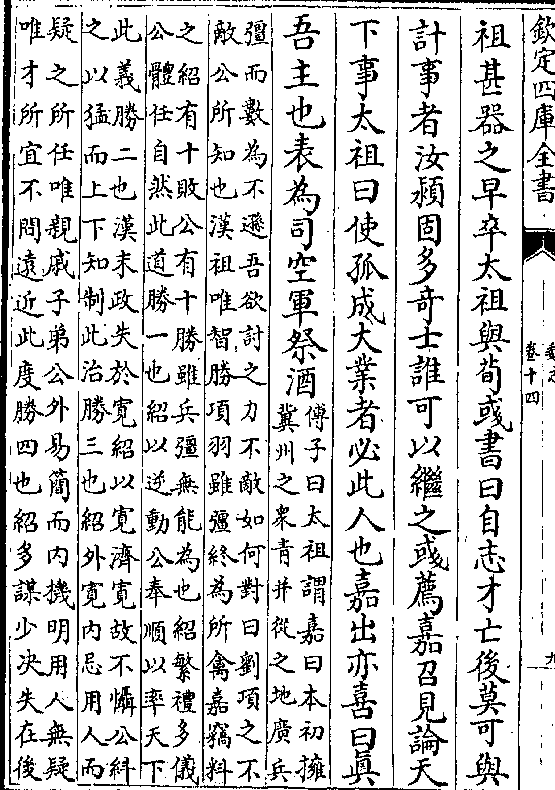 欽定四庫全書
卷十四
祖甚器之早卒太祖與荀彧書曰自志才亡後莫可與
計事者汝潁固多奇士誰可以繼之彧薦嘉召見論天
下事太祖曰使孤成大業者必此人也嘉出亦喜曰真
吾主也表為司空軍祭酒
傅子曰太祖謂嘉曰本初擁
冀州之衆青并從之地廣兵
彊而數為不遜吾欲討之力不敵如何對曰劉項之不
敵公所知也漢祖唯智勝項羽雖彊終為所禽嘉竊料
之紹有十敗公有十勝雖兵彊無能為也紹繁禮多儀
公體任自然此道勝一也紹以逆動公奉順以率天下
此義勝二也漢末政失於寛紹以寛濟寛故不懾公糾
之以猛而上下知制此治勝三也紹外寛内忌用人而
疑之所任唯親戚子弟公外易簡而内機明用人無疑
唯才所宜不問逺近此度勝四也紹多謀少決失在後